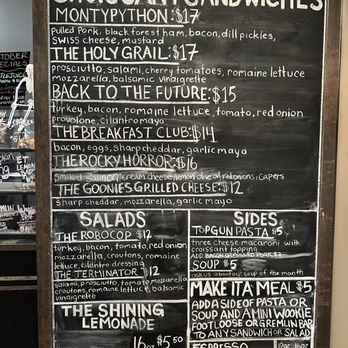 CROISSANT SANDWICHES
MONTYPYTHON: $17
Pulled Pork, black forest ham, bacon, dill pickles,
swiss cheese, mustard
THE HOLY GRAIL: $17
prosciutto, salami, cherry tomatoes, romaine lettuce
mozzarella, balsamic vinaigrette
BACK TO THE FUTURE: $15
turkey, bacon, romaine lettuce, tomato, red onion
provolone, cilantro mayo
THE BREAKFAST CLUB: $14
bacon, eggs, sharp cheddar, garlic mayo
THE ROCKY HORROR: $16
smoked salmon, cream cheese, lemon, red onions, capers
THE GOONIES GRILLED CHEESE: $12
sharp cheddar, mozzarella, garlic mayo
SALADS
THE ROBOCOP $12
turkey, bacon, tomato, red onion
mozzarella, croutons, romaine
lettuce, cilantro dressing
THE TERMINATOR $12
salami, prosciutto, tomato, mozzarella
croutons, romaine lettuce, balsamic
vinaigrette
THE SHINING
LEMONADE
16oz $5.50
SIDES
TOPGUN PASTA $5
three cheese macaroni with
croissant topping
SOUP $5
ask us about our soup of the month
MAKE IT A MEAL $5
ADD A SIDE OF PASTA OR
SOUP AND A MINI WOOKIE
FOOTLOOSE OR GREMLIN BAR
TO ANY SANDWICH OR SALAD
ESPRESSO 12oz 16oz